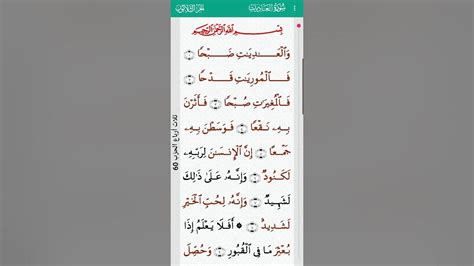 سُورَةُ العَادِيَاتِ
الجزء الثلاثون
بِسْمِ ٱللَّهِ ٱلرَّحْمَـٰنِ ٱلرَّحِيمِ
وَٱلْعَـٰدِيَـٰتِ ضَبْحًا ۝
فَٱلْمُورِيَـٰتِ قَدْحًا ۝
فَٱلْمُغِيرَٰتِ صُبْحًا ۝ فَأَثَرْنَ
بِهِۦ نَقْعًا ۝ فَوَسَطْنَ بِهِۦ
جَمْعًا ۝ إِنَّ ٱلْإِنسَـٰنَ لِرَبِّهِۦ
لَكَنُودٌ ۝ وَإِنَّهُۥ عَلَىٰ ذَٰلِكَ
لَشَهِيدٌ ۝ وَإِنَّهُۥ لِحُبِّ ٱلْخَيْرِ
لَشَدِيدٌ ۝ ۞ أَفَلَا يَعْلَمُ إِذَا
بُعْثِرَ مَا فِى ٱلْقُبُورِ ۝ وَحُصِّلَ
ثلاث أرباع الحزب 60